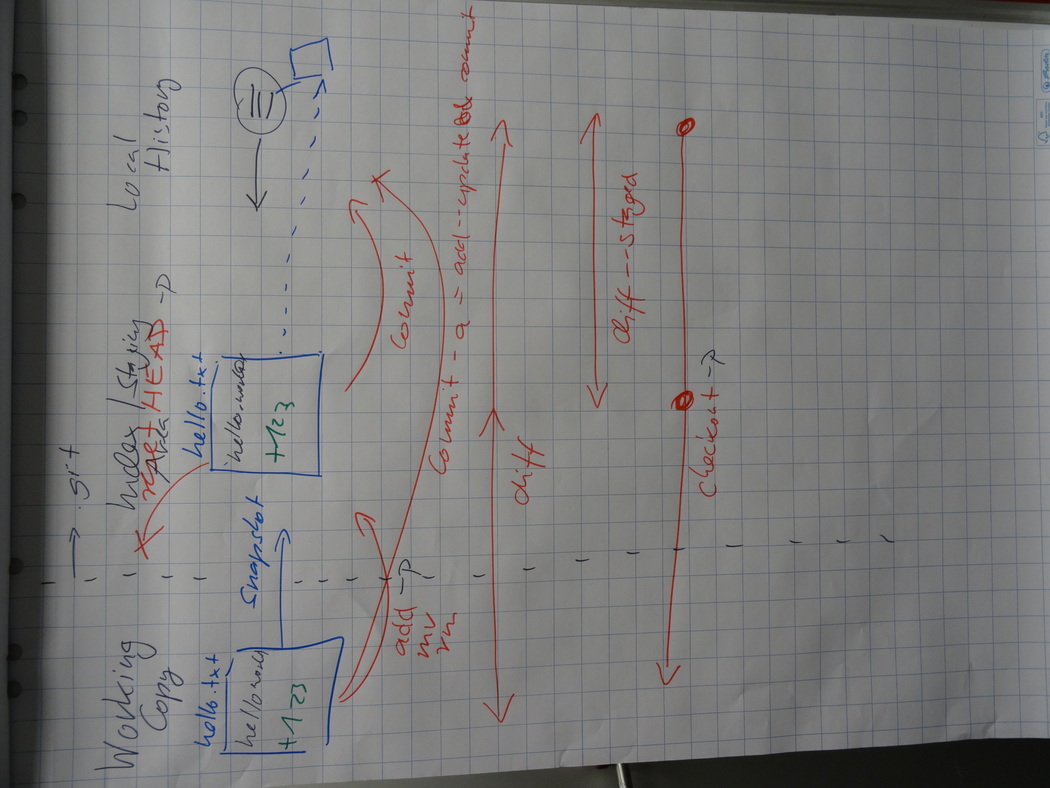 .git
Working
Copy
Index / Staging
Area
reset HEAD -p
Local
History
hello.txt
hello world
+123
snapshot
hello.txt
hello world
+123
add -p
mv
rm
commit
commit -a = add --update && commit
diff
diff --staged
checkout -p